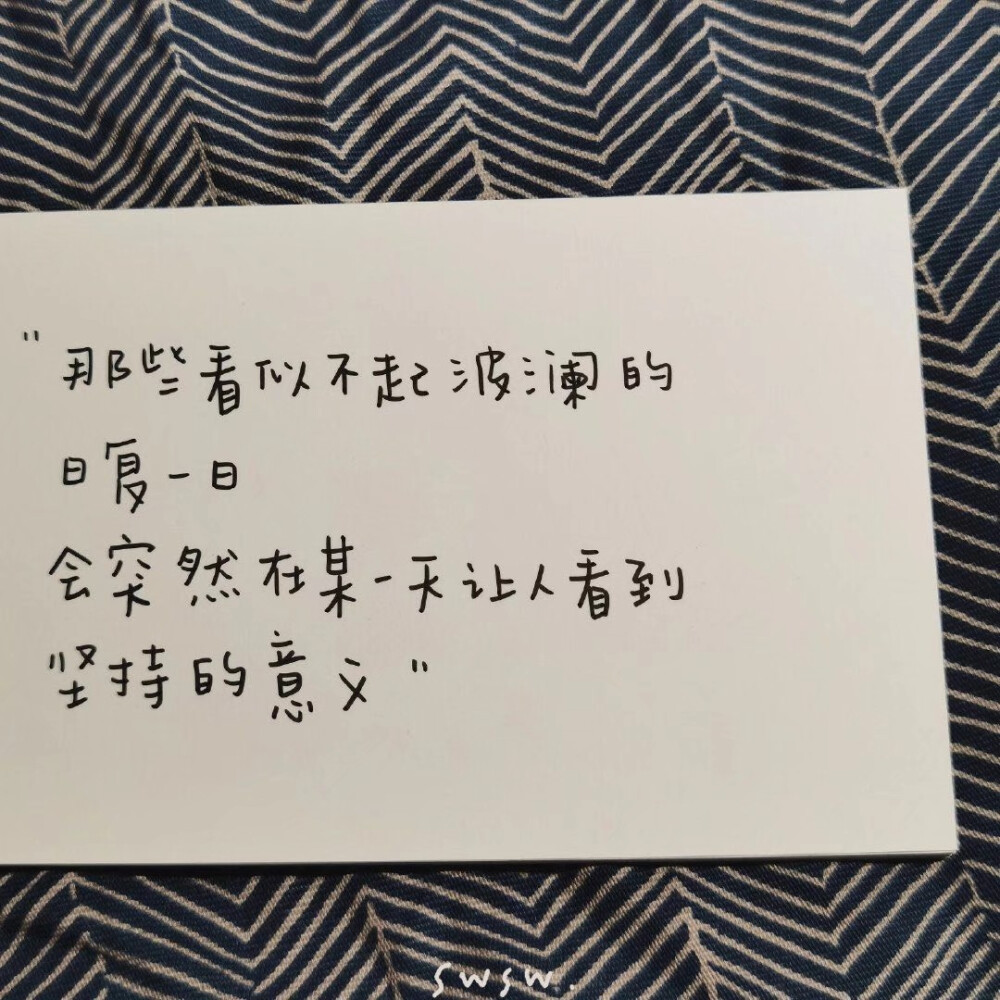 "那些看似不起波澜的
日复一日
会突然在某一天让人看到
坚持的意义"
swsw.